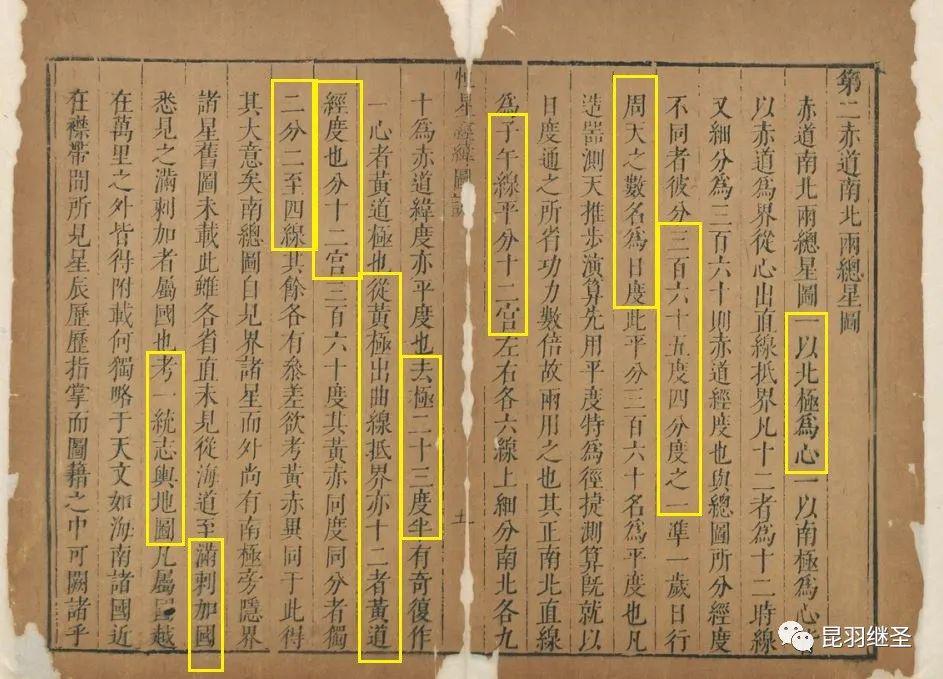 第二赤道南北兩總星圖
赤道南北兩總星圖一以北極爲心一以南極爲心
以赤道爲界從心出直線抵界凡十二者爲十二時線
又細分爲三百六十則赤道經度也與總圖所分經度
不同者彼分三百六十五度四分度之一準一歲日行
周天之數名爲日度此平分三百六十名爲平度也凡
造器測天推步演算先用平度特爲徑捷測算旣就以
日度通之所省功力數倍故兩用之也其正南北直線
爲子午線平分十二宮左右各六線上細分南北各九
恒星經緯圖說
五
十爲赤道緯度亦平度也去極二十三度半有奇復作
一心者黃道極也從黃極出曲線抵界亦十二者黃道
經度也分十二宮三百六十度其黃赤同度同分者獨
二分二至四線其餘各有參差欲考黃赤異同于此得
其大意矣南總圖自見界諸星而外尚有南極旁隱界
諸星舊圖未載此雖各省直未見從海道至滿剌加國
悉見之滿剌加者屬國也考一統志輿地圖凡屬國越
在萬里之外皆得附載何獨略于天文如海南諸國近
在襟帶間所見星辰歷歷指掌而圖籍之中可闕諸乎
昆羽继圣